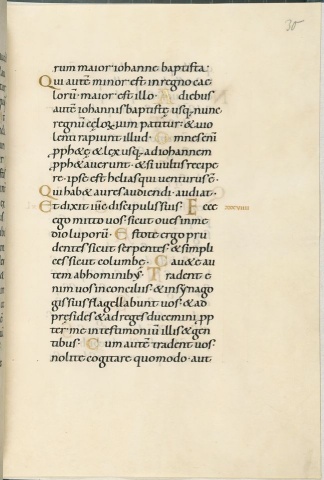 30
rum maior iohanne baptista·
Qui autē minor est in regno cae
lorū· maior est illo· A diebus
autē iohannis baptistę usq; nunc
regnū cęloꝝ uim patitur· & uio
lenti rapiunt illud· Omnes eni
ꝓph&ę & lex usq; ad iohannem
ꝓph&auerunt· & si uultis recipe
re· ipse est helias qui uenturus ē·
Qui hab& aures audiendi· audiat·
Et dixit ih̄s discipulis suis· Ecce
ego mitto uos· sicut oues in me
dio luporū· Estote ergo pru
dentes sicut serpentes· & simpli
ces sicut columbę· Cau&e au
tem ab hominib;· Tradent e
nim uos in conciliis· & in synago
gis suis flagellabunt uos· & ad
pręsides & ad reges ducemini ꝓp
ter me in testimoniū illis & gen
tibus· Cum autē tradent uos·
nolite cogitare quomodo aut